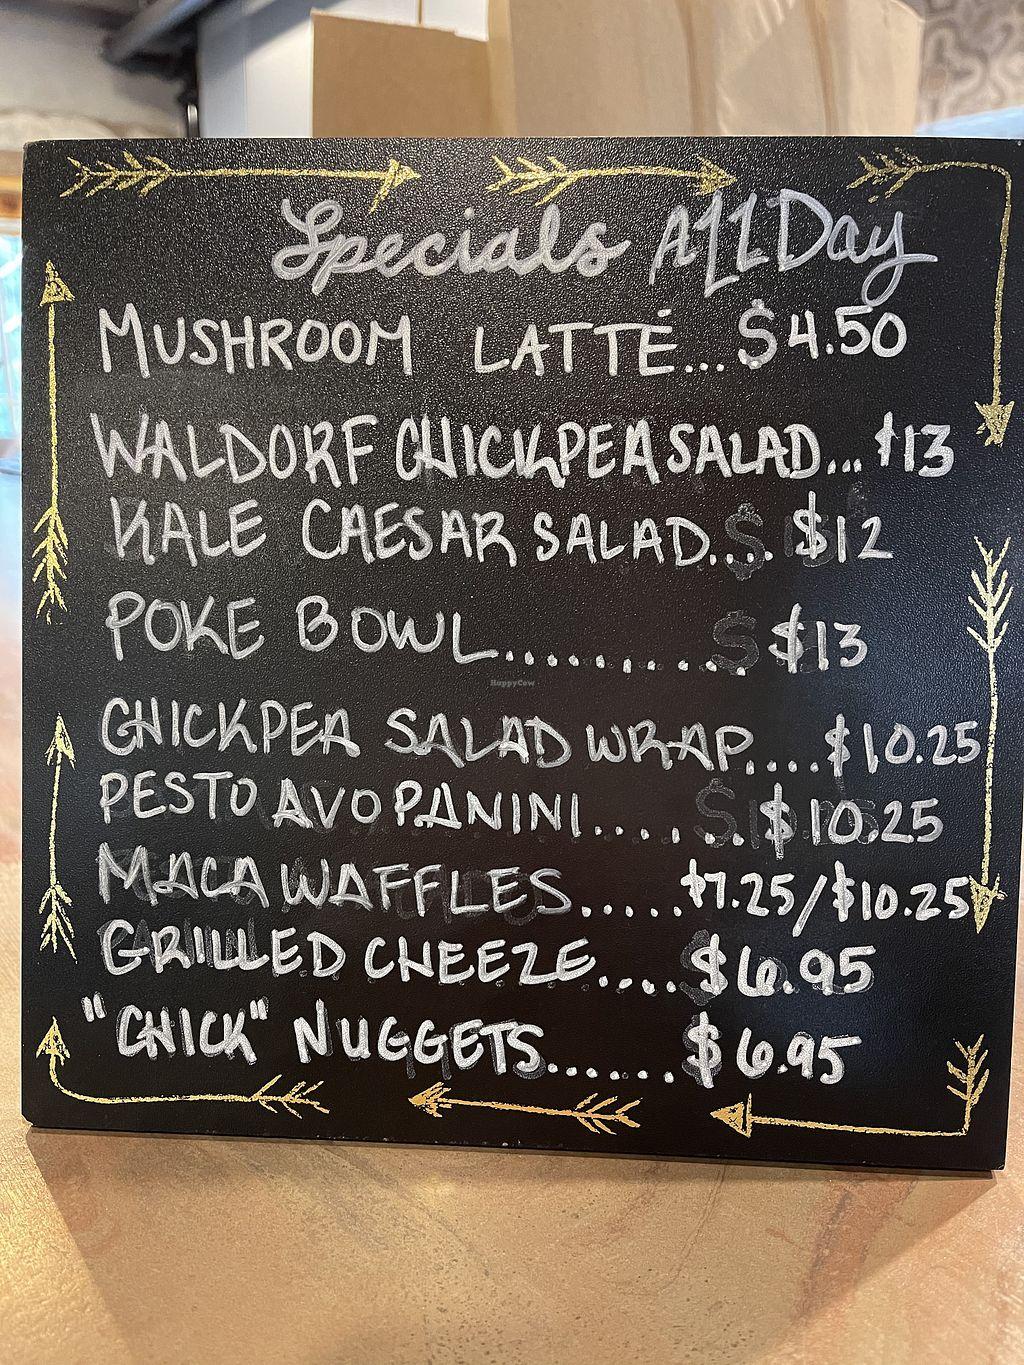 Specials All Day
MUSHROOM LATTÉ...$4.50
WALDORF CHICKPEA SALAD...$13
KALE CAESAR SALAD.... $12
POKE BOWL........... $13
HappyCow
CHICKPEA SALAD WRAP....$10.25
PESTO AVO PANINI.......$10.25
MACA WAFFLES.....$7.25/$10.25
GRILLED CHEEZE....$6.95
"CHICK" NUGGETS......$6.95